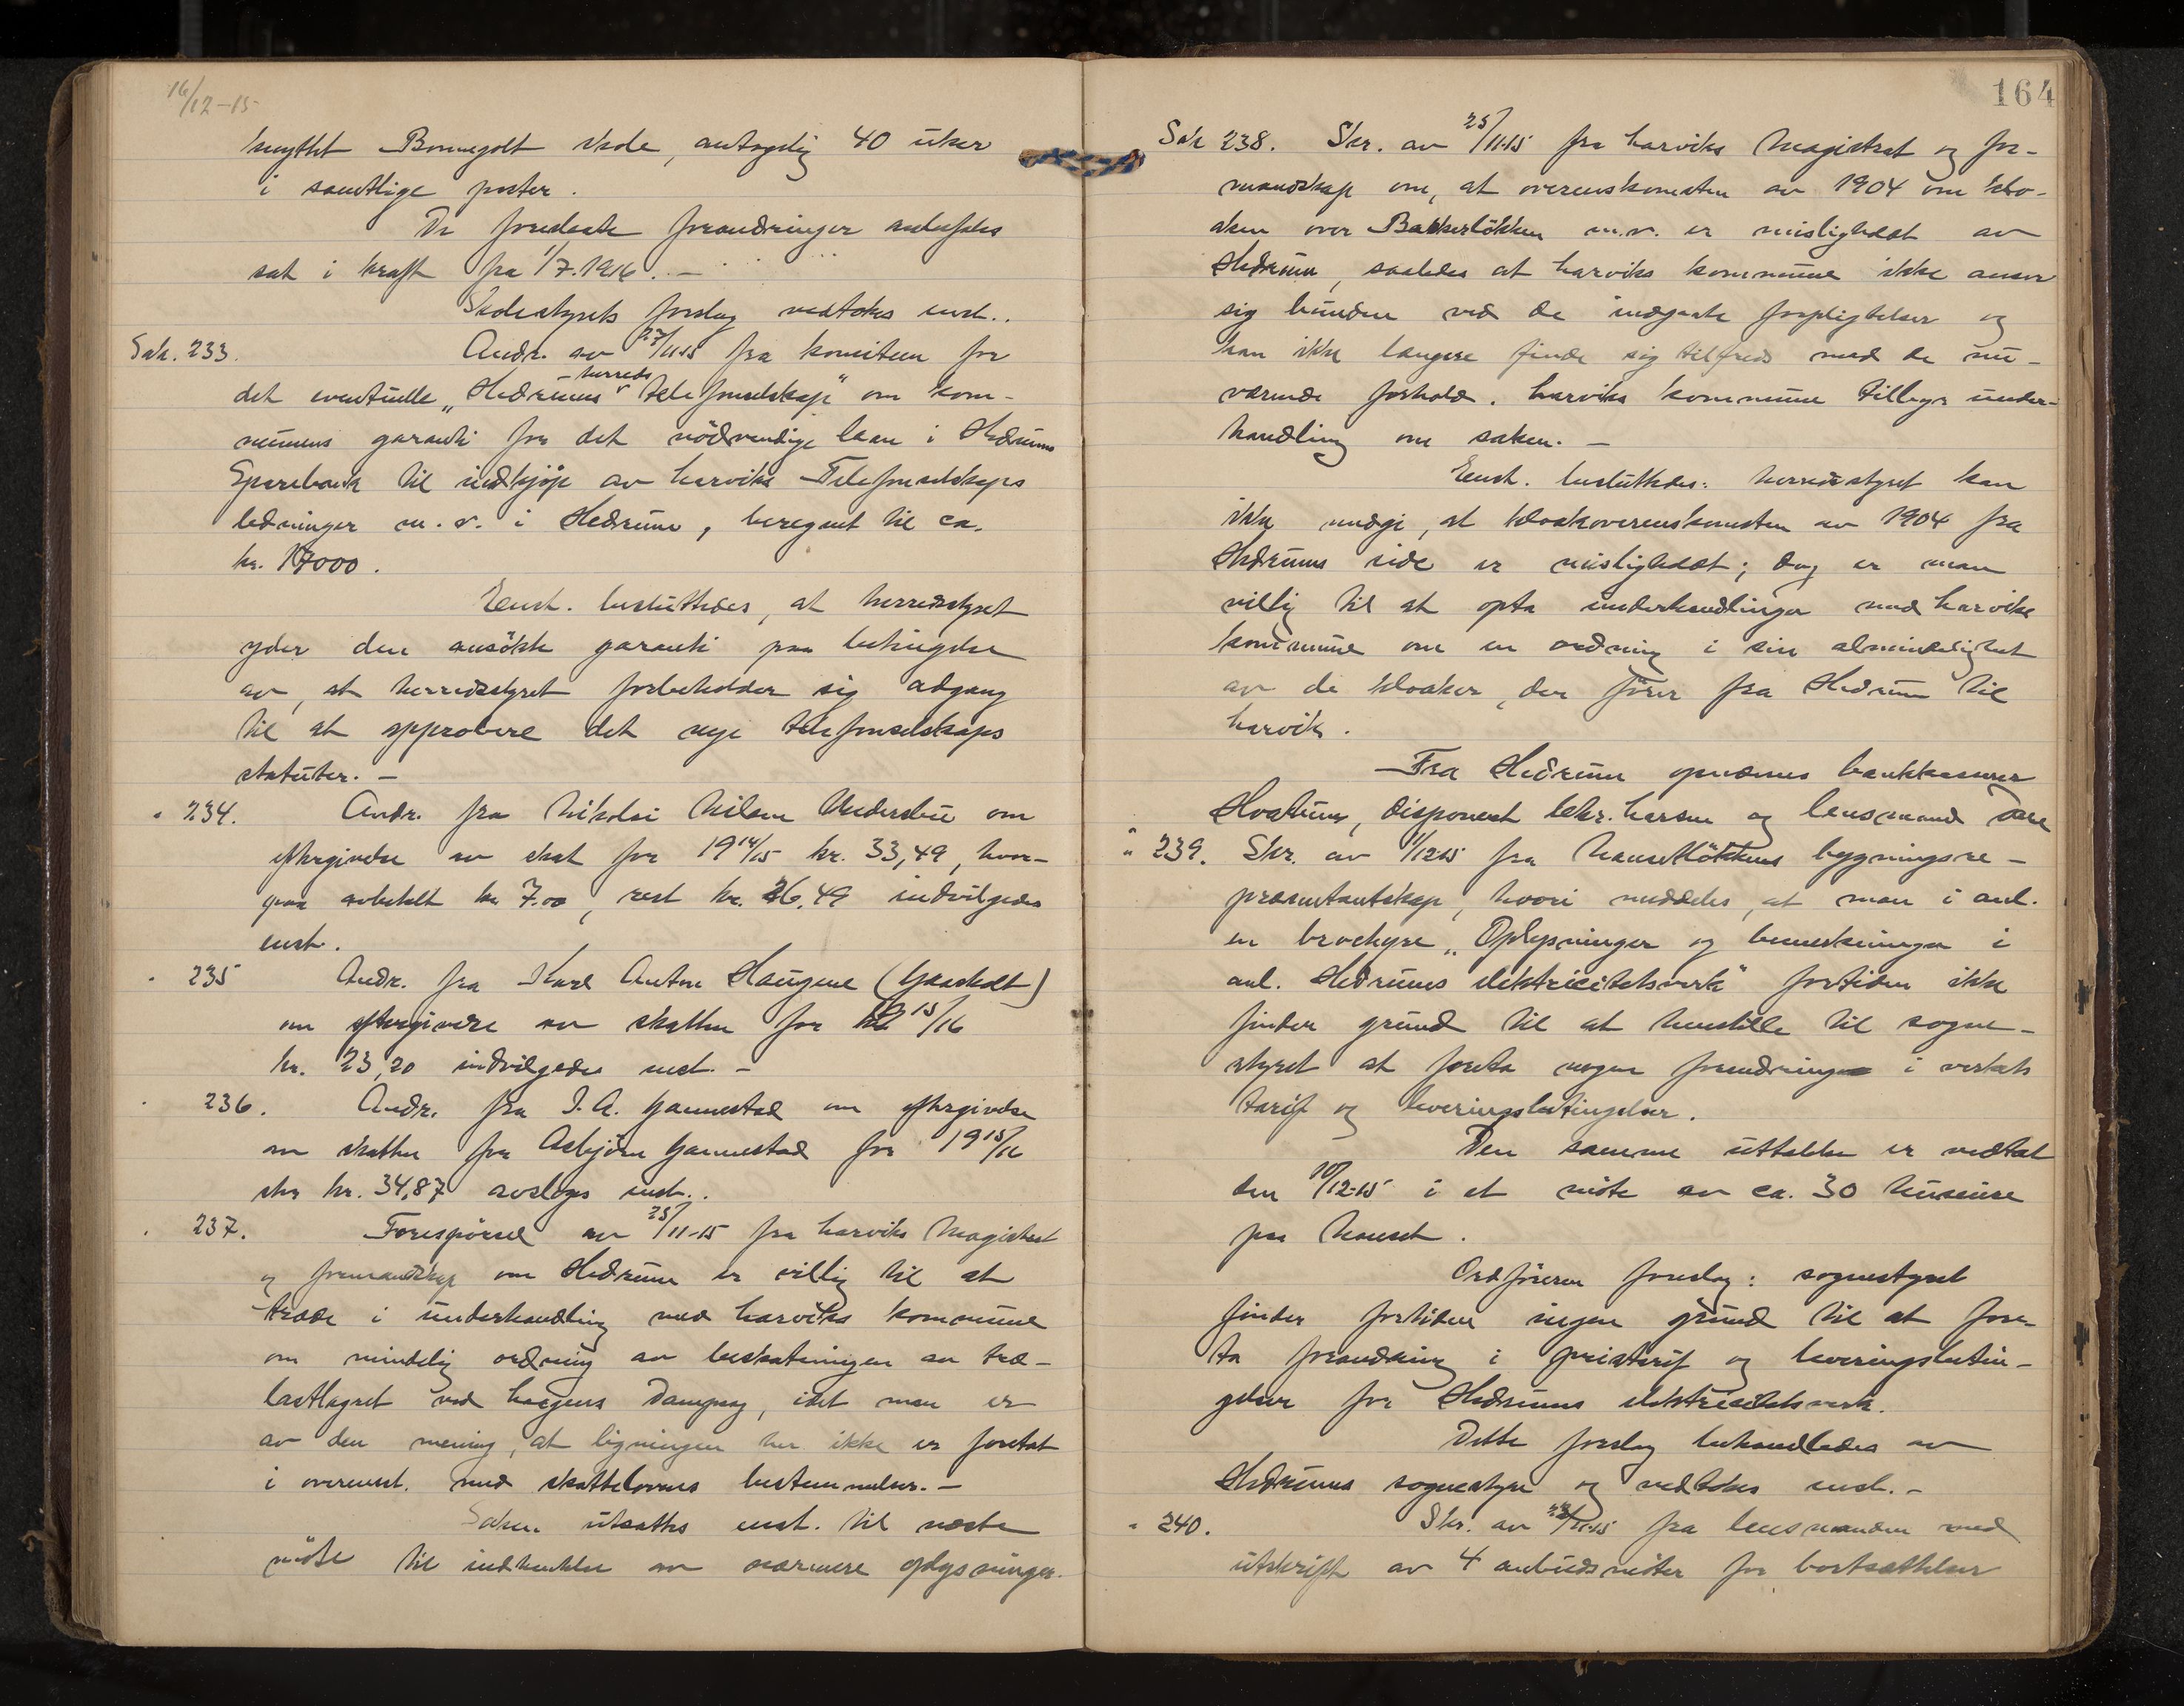 16/12-15
knyttet Bommegolt skole, antagelig 40 uker
i samtlige poster.
De foreslaate forandringer anbefales
sat i kraft fra 1/7.1916. –
Skolestyrets forslag vedtokes enst..
Sak. 233. Andr. av 27/11-15 fra komiteen for
det eventuelle „Hedrums herreds telefonselskap" om kom-
munens garanti for det nödvendige laan i Hedrums
Sparebank til indkjöp av Larviks Telefonselskaps
ledninger m.v. i Hedrum, beregnet til ca.
kr. 17000.
Enst. besluttedes, at herredsstyret
yder den ansökte garanti paa betingelse
av, at herredsstyret forbeholder sig adgang
til at approbere det nye telefonselskaps
statuter. –
" 234. Andr. fra Nikolai Nilsen om
eftergivelse av skat for 1914/15 kr. 33,49, hvor-
paa avbetalt kr. 7.00, rest kr. 26,49 indvilgedes
enst.
" 235 Andr. fra Karl Anton Haugene (Gaaskolt)
om eftergivelse av skatten for 15/16
kr. 23,20 indvilgedes enst. –
" 236. Andr. fra I. A. Gannestad om eftergivelse
av skatten for Asbjörn Gannestad for 1915/16
stor kr. 34,87 avsloges enst..
" 237. Forespörsel av 25/11-15 fra Larviks Magistrat
og formandskap om Hedrum er villig til at
træde i underhandling med Larviks kommune
om mindelig ordning av beskatningen av træ-
lastlagret ved Dampsag, idet man er
av den mening, at ligningen her ikke er foretat
i overenst. med skattelovens bestemmelser. –
Saken utsattes enst. til næste
möte til indhentelse av nærmere oplysninger.
164
Sak 238. Skr. av 25/11-15 fra Larviks Magistrat og for-
mandskap om, at overenskomsten av 1904 om klo-
aken over Bakkerløkken m.v. er misligholdt av
Hedrum, saaledes at Larviks kommune ikke anser
sig bunden ved de indgaate forpligtelser og
kan ikke længere finde sig tilfreds med de nu-
værende forhold. Larviks kommune tilbyr under-
handling om saken. –
Enst. besluttedes: herredsstyret kan
ikke medgi, at kloakoverenskomsten av 1904 fra
Hedrums side er misligholdt; dog er man
villig til at opta underhandlinger med Larviks
kommune om en ordning i sin almindelighet
av de kloaker, der förer fra Hedrum til
Larvik.
Fra Hedrum opnævnes bankkasserer
Hvatum, disponent Chr. Larsen og lensmand
" 239. Skr. av 11/12-15 fra Nansetlökkens bygningsre-
præsentantskap, hvori meddeles, at man i anl.
en brochyre „Oplysninger og bemerkninger i
anl. Hedrums elektricitetsverk" fortiden ikke
finder grund til at henstille til sogne-
styret at foreta nogen forandring i verkets
tarif og leveringsbetingelser.
Den samme uttalelse er vedtat
den 10/12-15 i et möte av ca. 30 huseiere
paa Nanset.
Ordföreren foreslog: sognestyret
finder fortiden ingen grund til at fore-
ta forandring i pristarif og leveringsbetin-
gelser for Hedrums elektricitetsverk.
Dette forslag behandledes av
Hedrums sognestyre og vedtokes enst. –
" 240. Skr. av /11-15 fra lensmanden med
utskrift av 4 anbudsmöter for bortsættelser